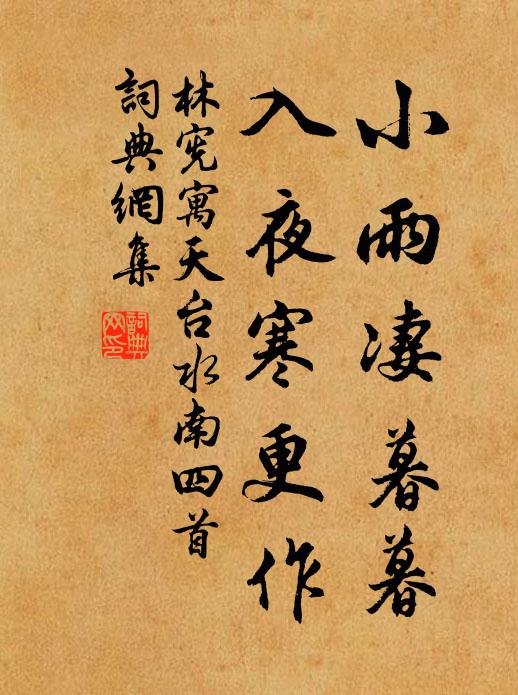 小雨凄暮暮
入夜寒更作
林宪寓天台水南四首
詞典網集
詞典网印